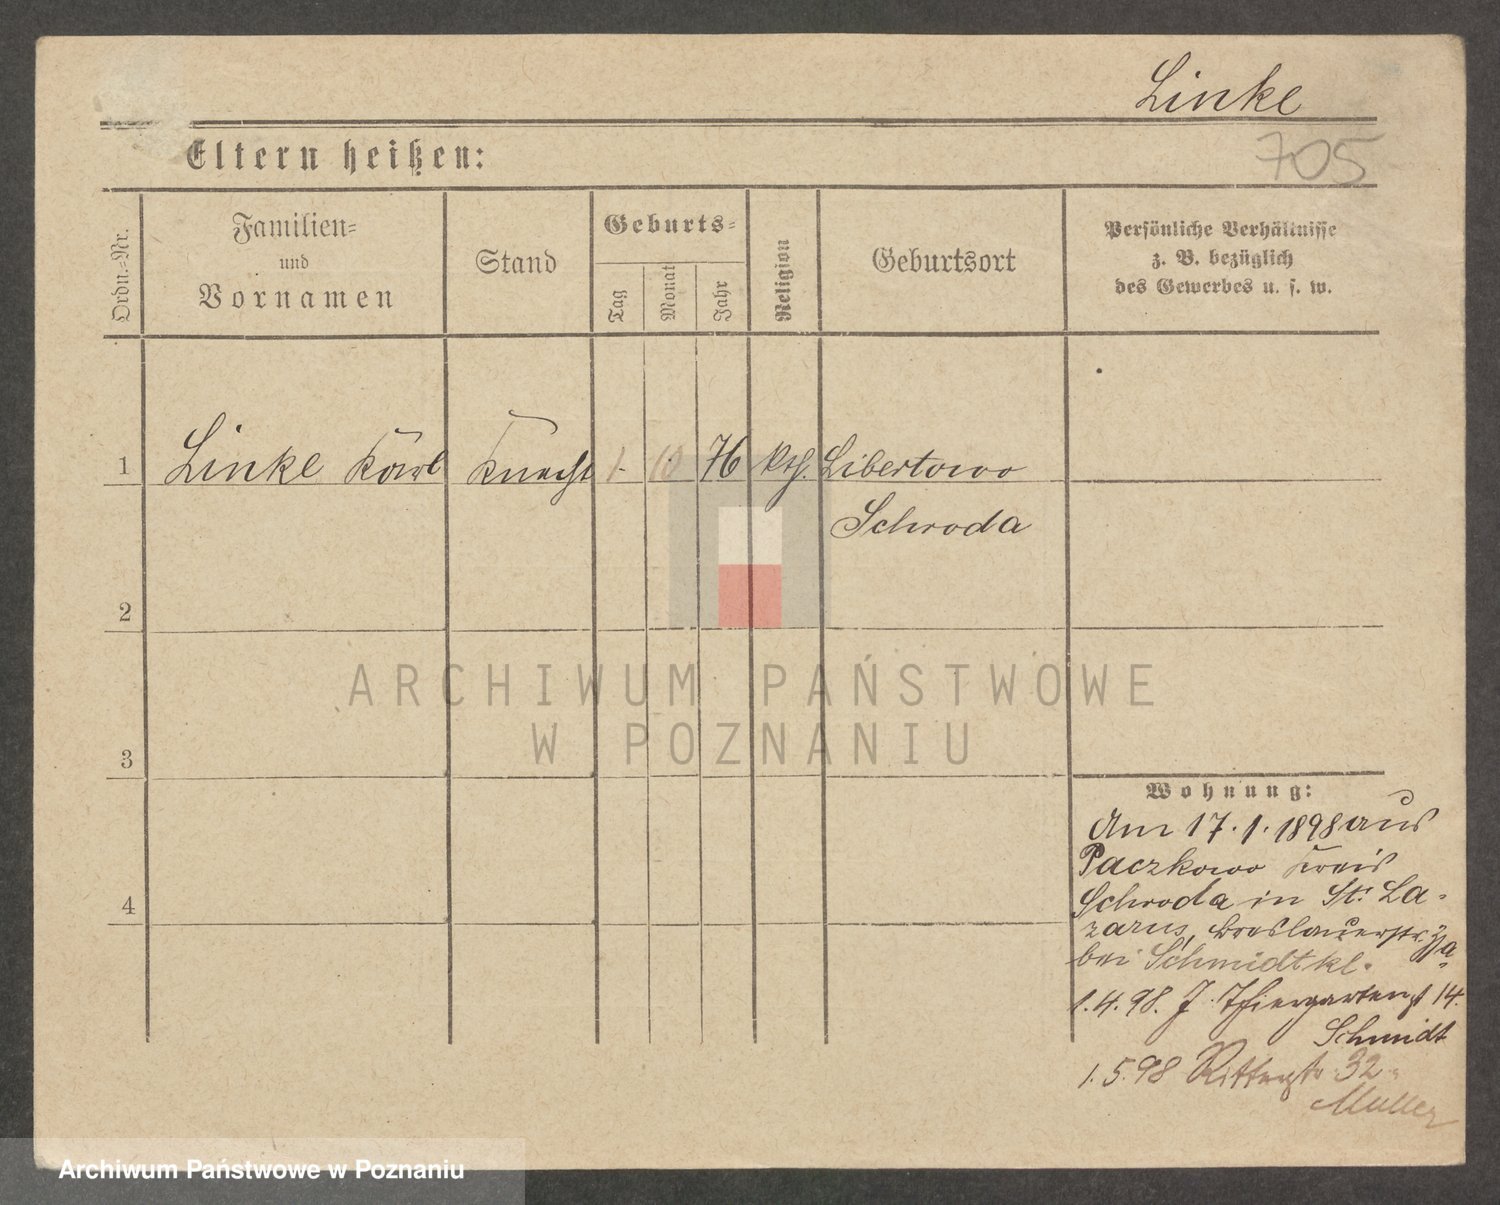 Linke
705
Eltern heißen:
Ordn.-Nr.
Familien-
und
Vornamen
Stand
Geburts-
Tag
Monat
Jahr
Religion
Geburtsort
Persönliche Verhältnisse
z. B. bezüglich
des Gewerbes u. s. w.
1 Linke Karl Knecht 1. 10 76 kth. Libertowo
Schroda
2
ARCHIWUM PAŃSTWOWE
W POZNANIU
3
Wohnung:
Am 17.1.1898 aus
Paczkowo Kreis
4
Schroda in St. La-
zarus, Breslauerstr.
bei Schmidt kl.
1.4.98. J. Thiergartenst 14.
Schmidt
1.5.98 Ritterstr. 32.
Müller
Archiwum Państwowe w Poznaniu